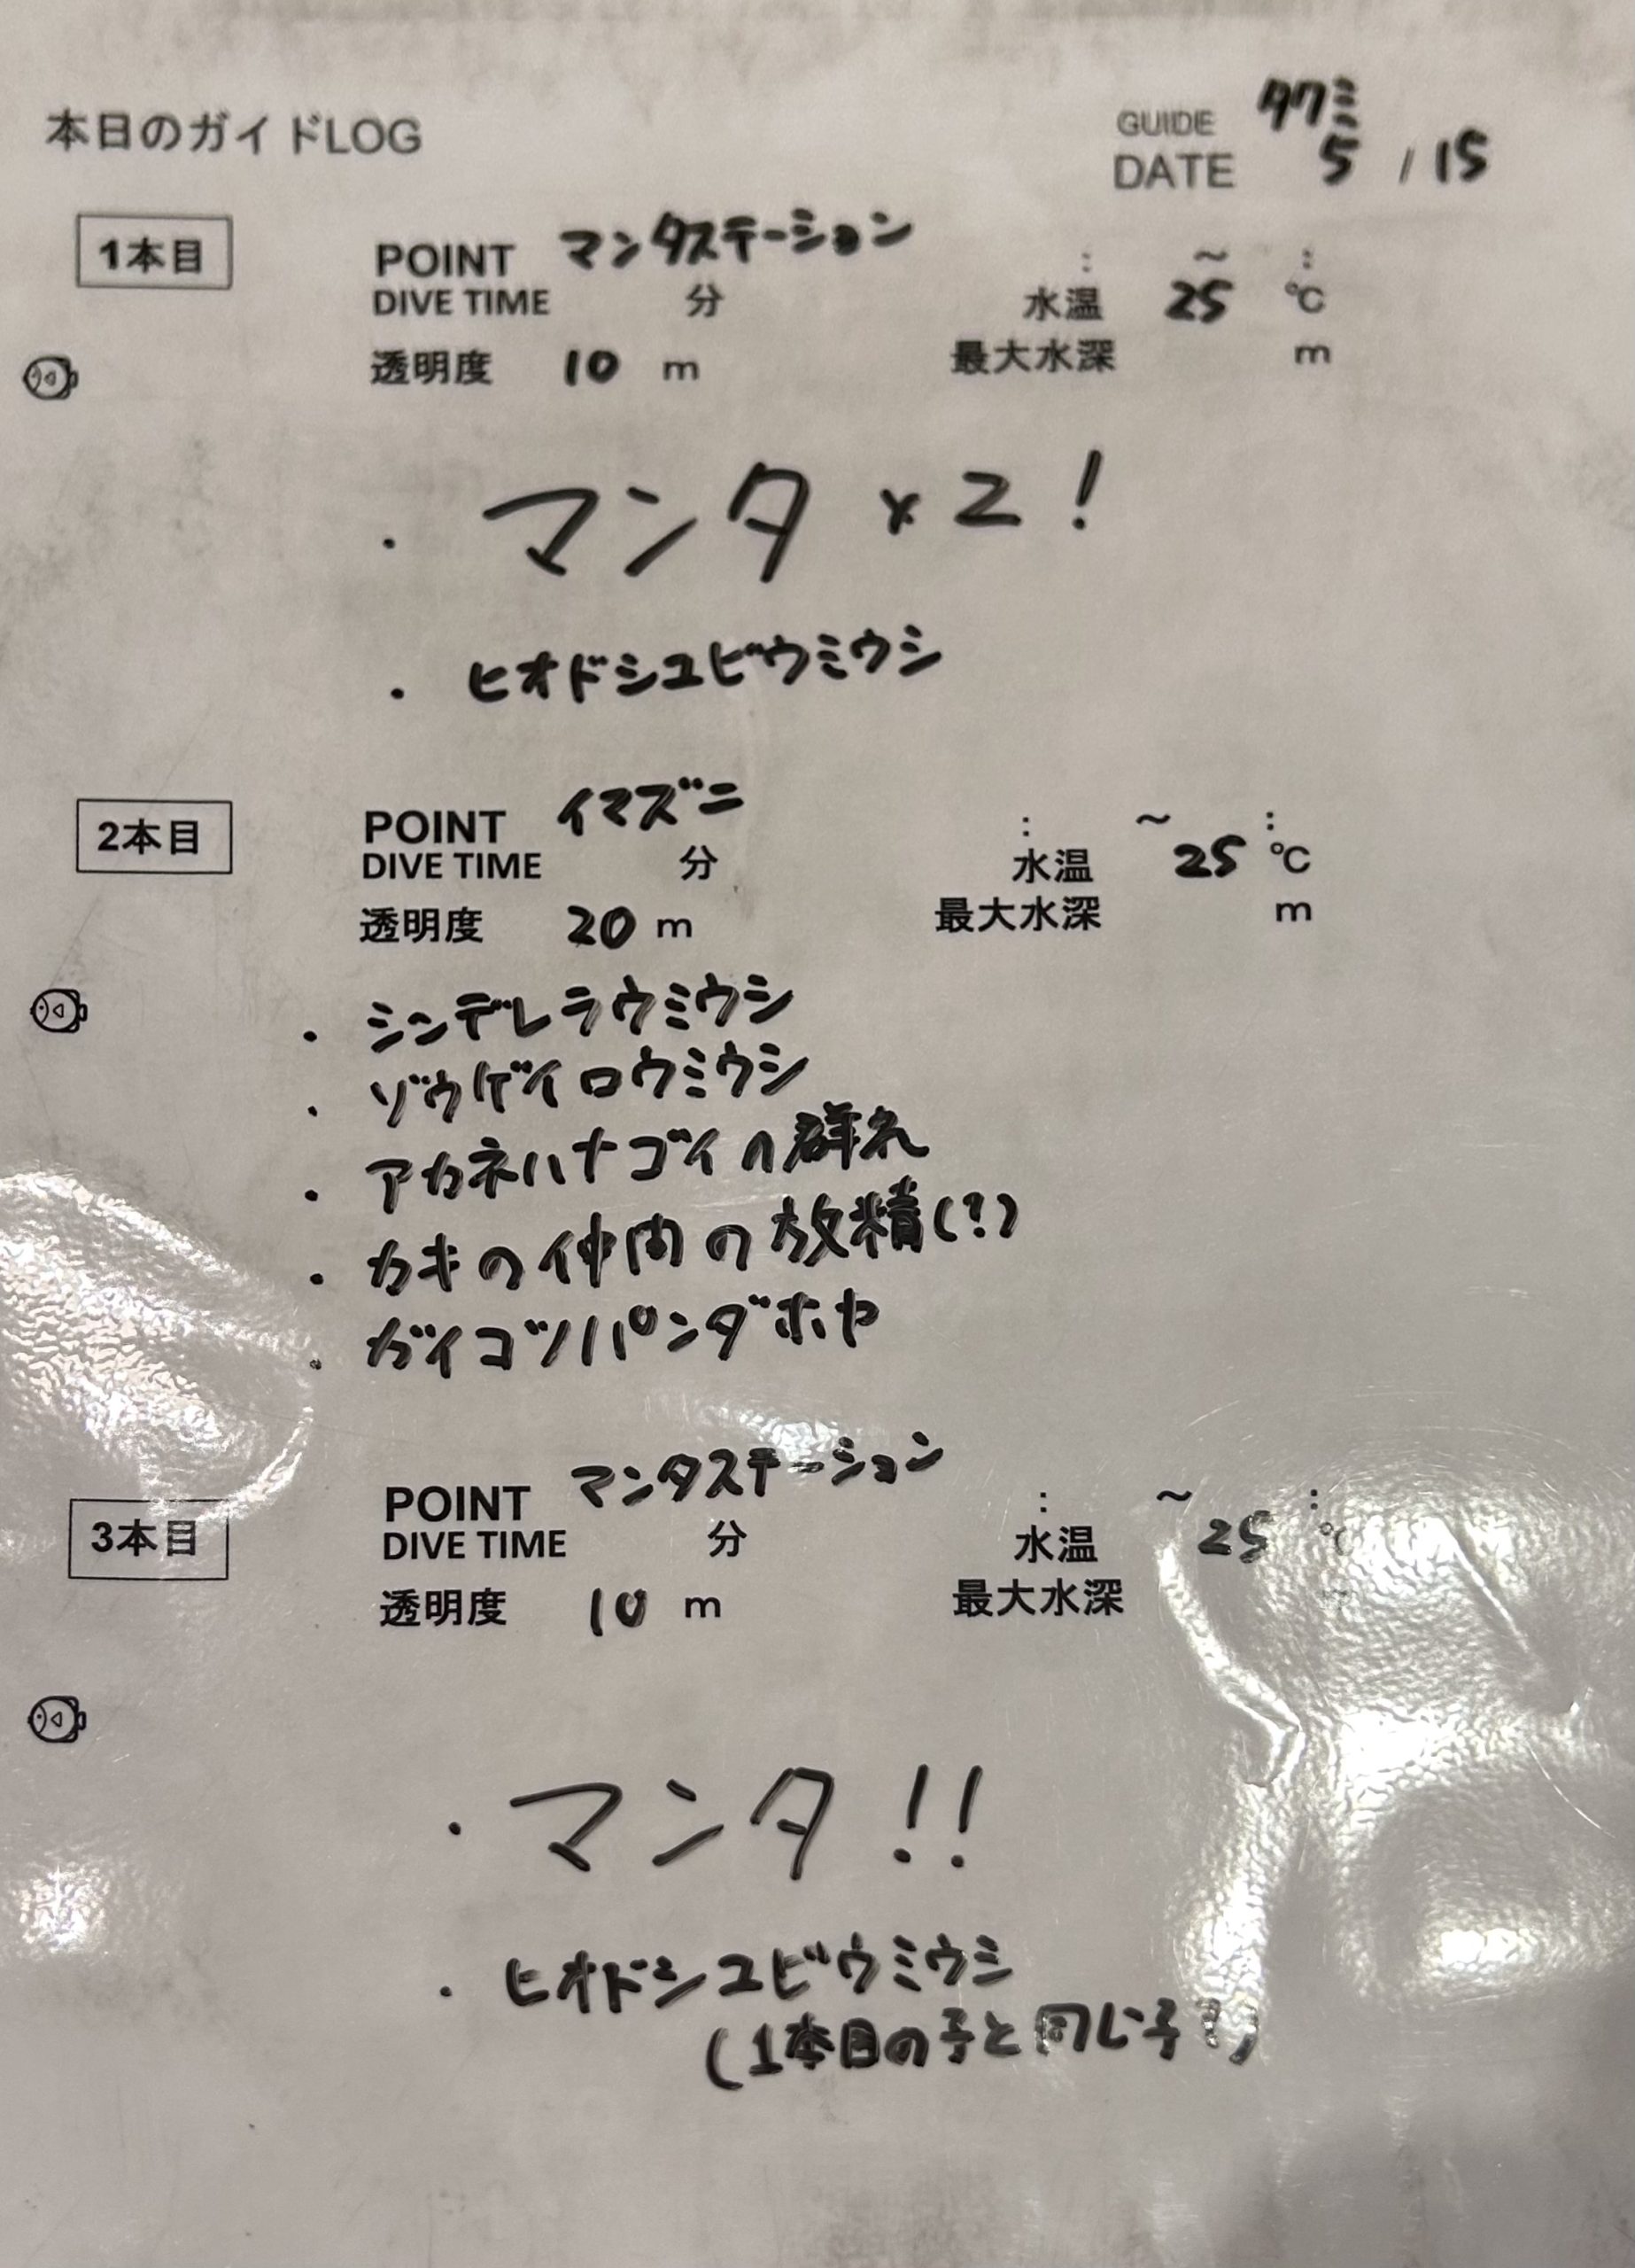 本日のガイドLOG
GUIDE タクミ
DATE 5 / 15
1本目
POINT マンタステーション : ～ :
DIVE TIME 分 水温 25 ℃
透明度 10 m 最大水深 m
・マンタ×2!
・ヒオドシユビウミウシ
2本目
POINT イマズニ : ～ :
DIVE TIME 分 水温 25 ℃
透明度 20 m 最大水深 m
・シンデレラウミウシ
・ゾウゲイロウミウシ
・アカネハナゴイの群れ
・カキの仲間の放精(?)
・ガイコツパンダホヤ
3本目
POINT マンタステーション : ～ :
DIVE TIME 分 水温 25 ℃
透明度 10 m 最大水深
・マンタ!!
・ヒオドシユビウミウシ
(1本目の子と同じ子?)